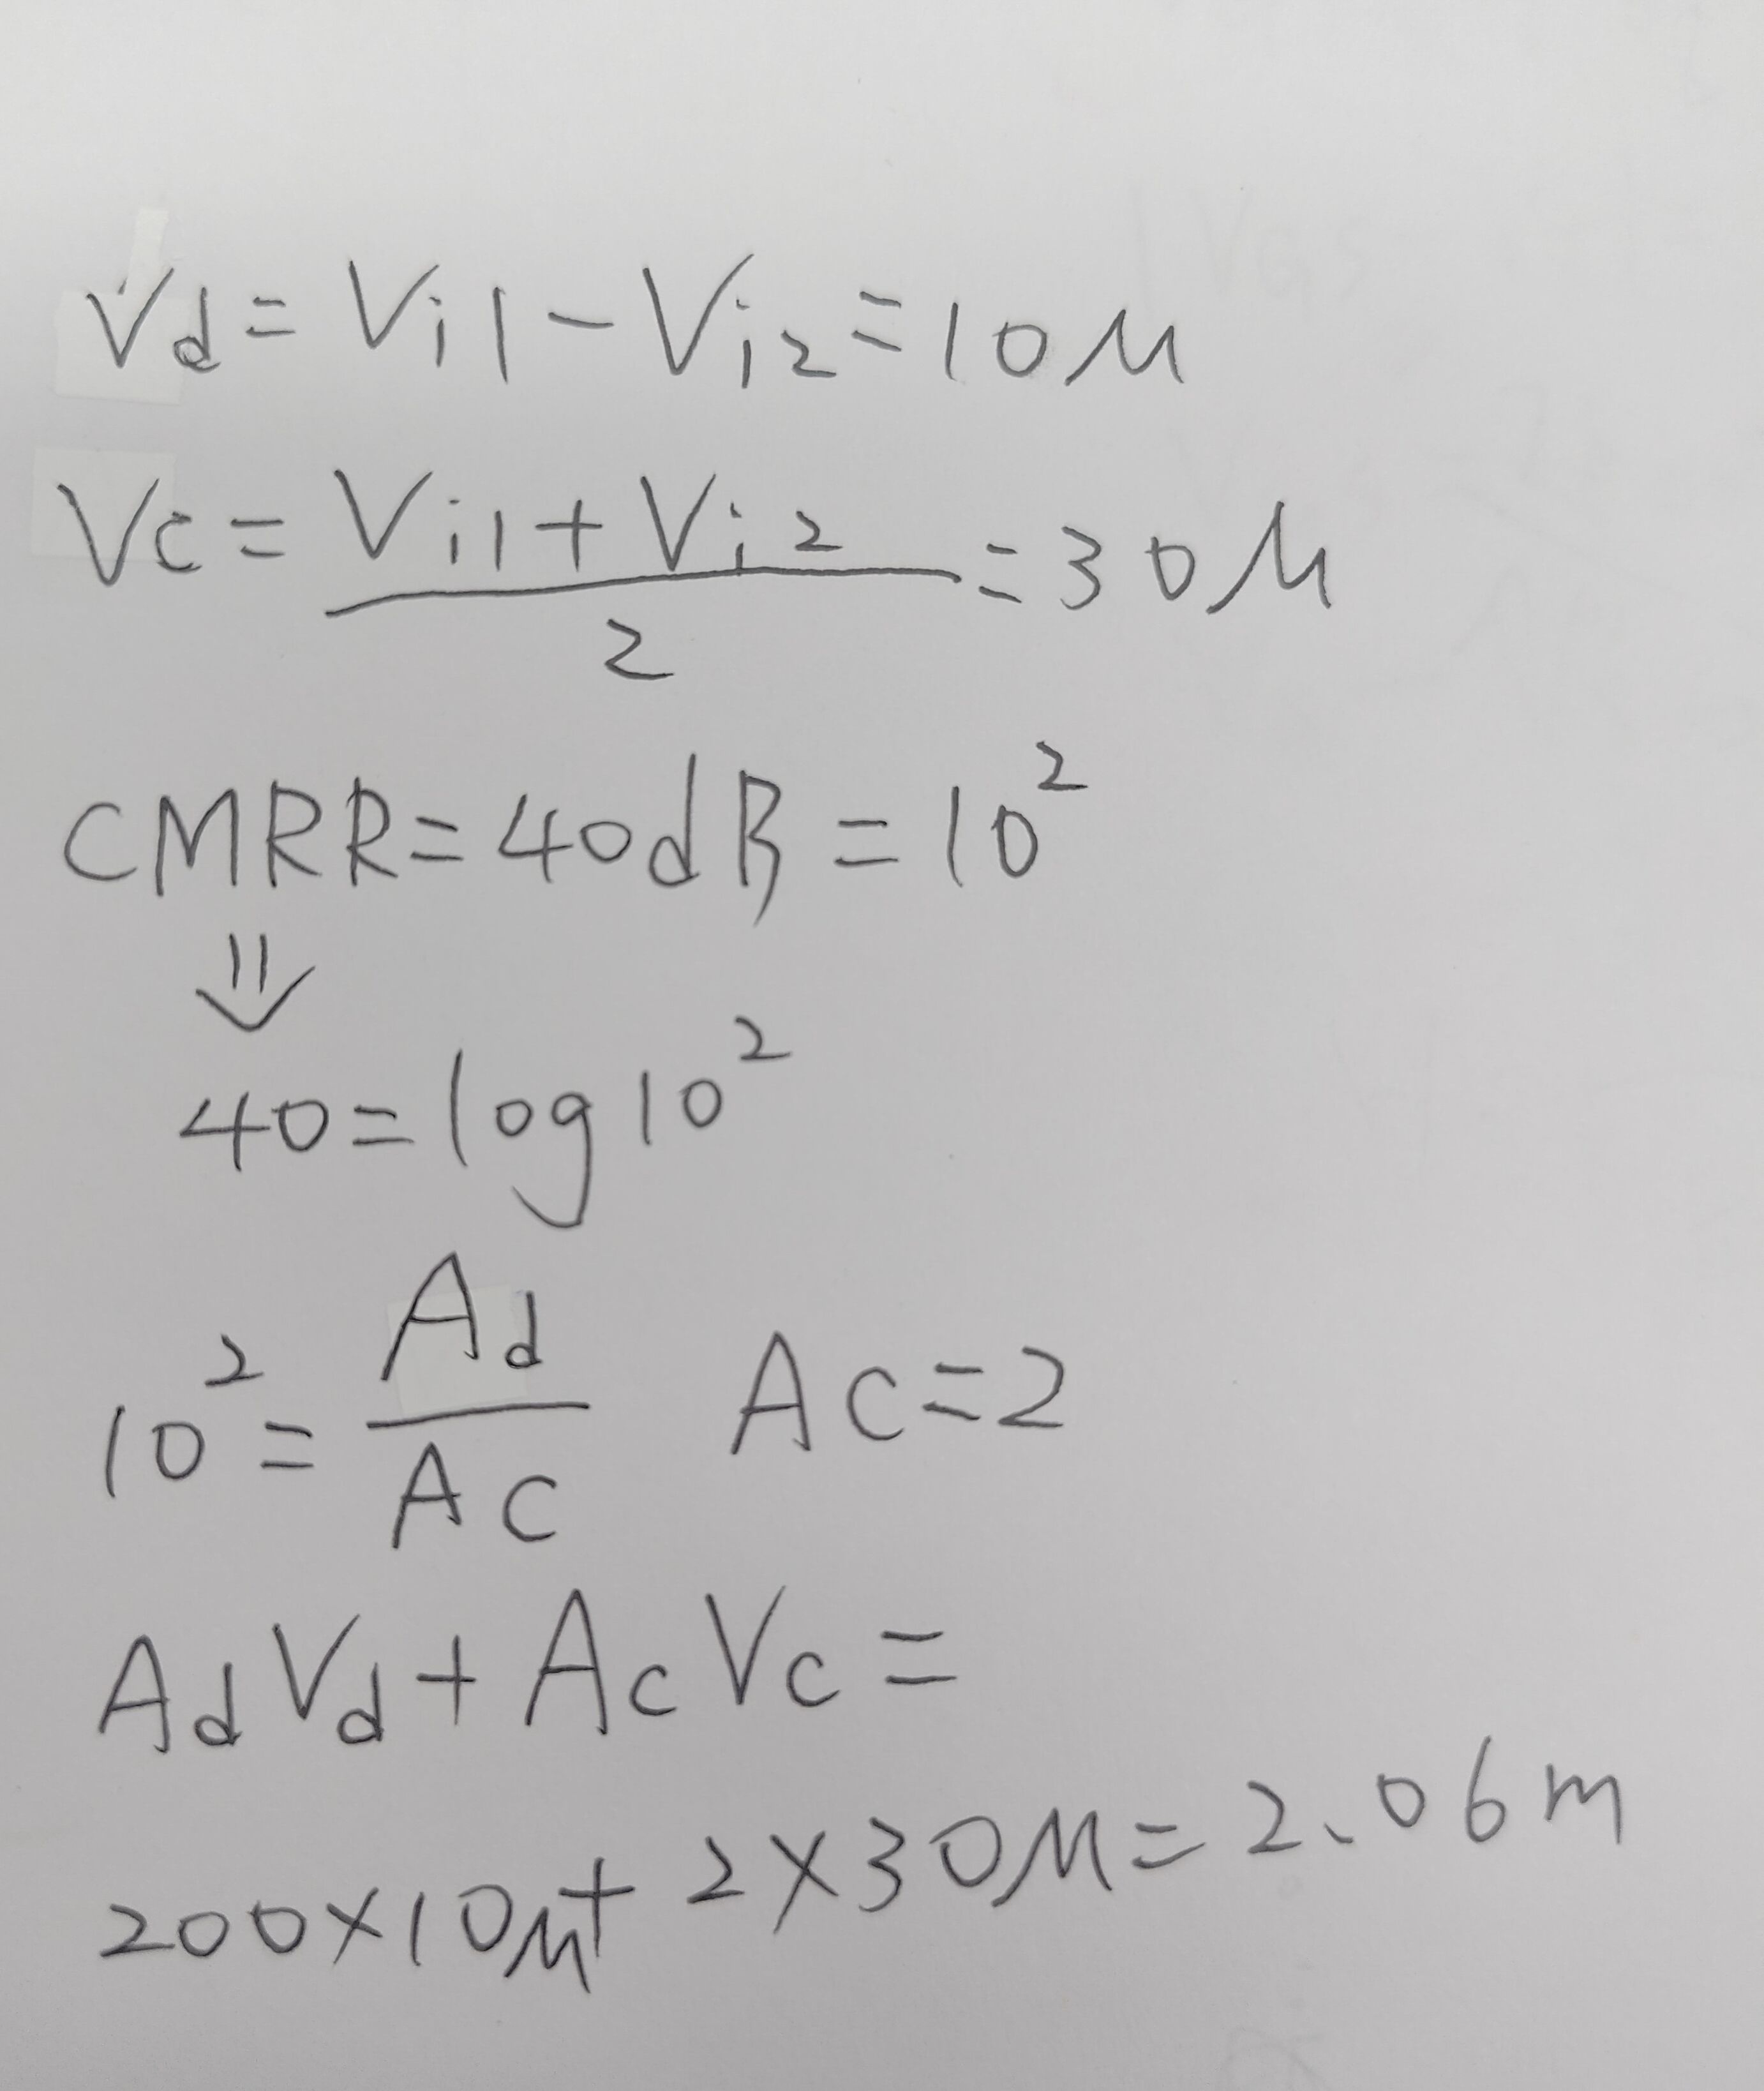 Vd = Vi1 - Vi2 = 10 μ
Vc = (Vi1 + Vi2) / 2 = 30 μ
CMRR = 40 dB = 10²
⇓
40 = log 10²
10² = Ad / Ac   Ac = 2
AdVd + AcVc =
200 × 10μ + 2 × 30μ = 2.06 m